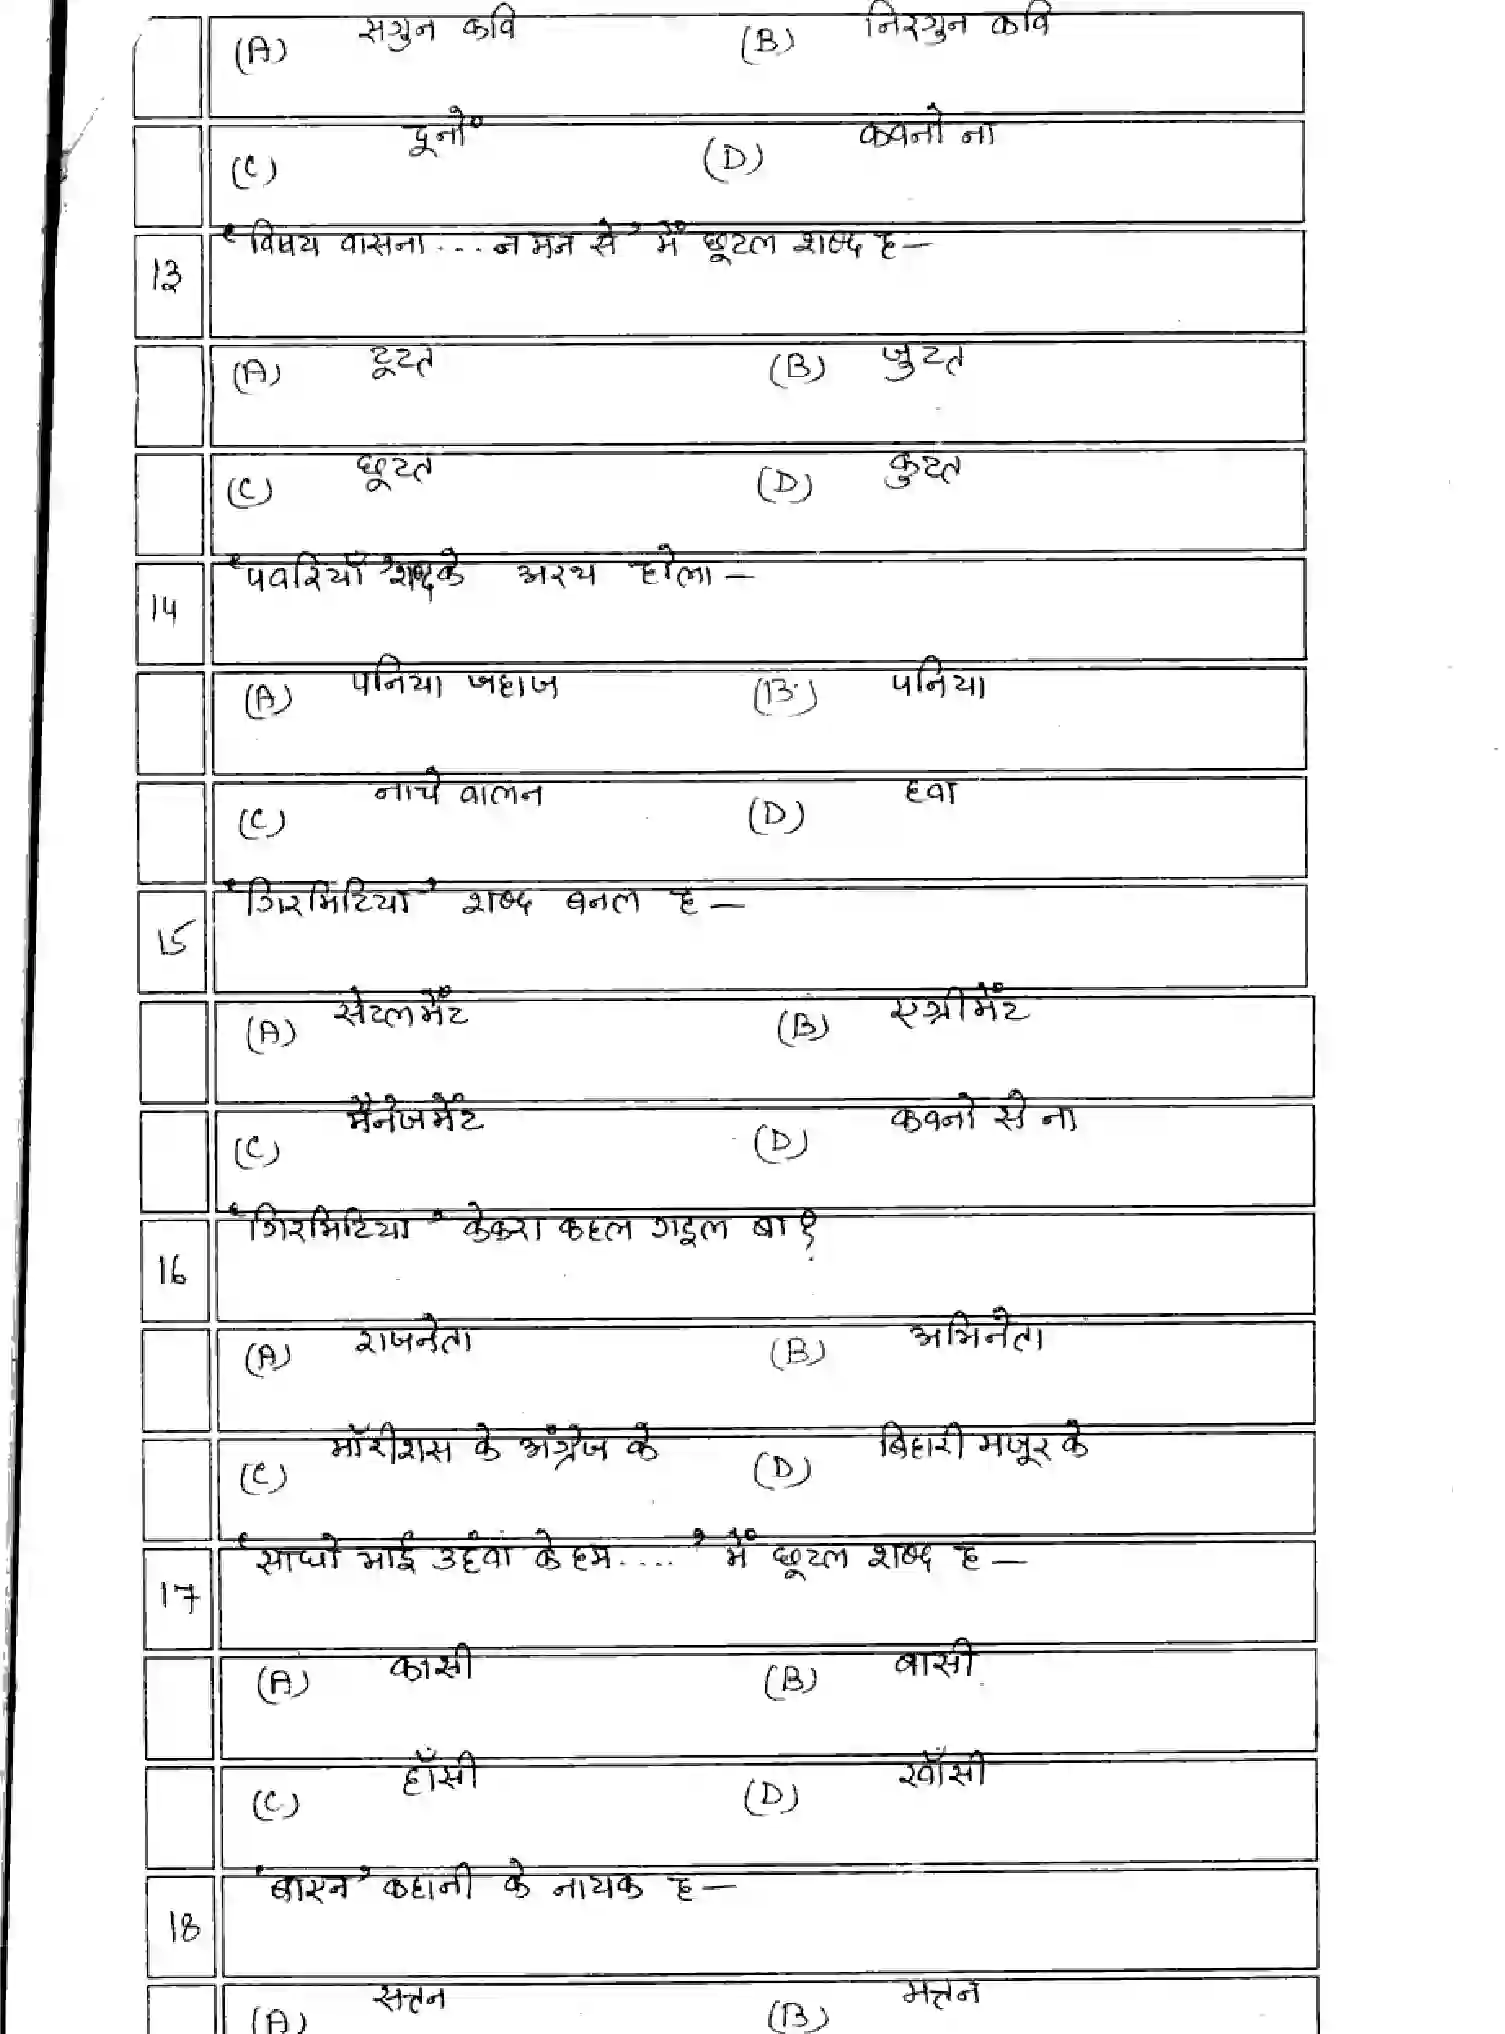 (A) सगुन कवि (B) निरगुन कवि
(C) दूनों (D) कवनो ना
13 'विषय वासना... न मन से' में छूटल शब्द ह —
(A) टूटत (B) जुटत
(C) छूटत (D) कुटत
14 'पवरियाँ' शब्द के अरथ होला —
(A) पनिया जहाज (B) पनिया
(C) नाचे वालन (D) हवा
15 'गिरमिटिया' शब्द बनल ह —
(A) सेटलमेंट (B) एग्रीमेंट
(C) मैनेजमेंट (D) कवनो से ना
16 'गिरमिटिया' केकरा कहल गइल बा?
(A) राजनेता (B) अभिनेता
(C) मॉरीशस के अंग्रेज के (D) बिहारी मजूर के
17 'साधो भाई उहँवा के हम....' में छूटल शब्द ह —
(A) कासी (B) बासी
(C) हाँसी (D) खाँसी
18 'बारन' कहानी के नायक ह —
(A) सत्तन (B) मत्तन